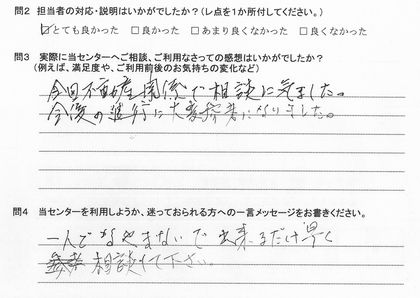 問2 担当者の対応・説明はいかがでしたか?(レ点を1か所付してください。)
☑とても良かった □良かった □あまり良くなかった □良くなかった
問3 実際に当センターへご相談、ご利用なさっての感想はいかがでしたか?
(例えば、満足度や、ご利用前後のお気持ちの変化など)
今回不動産関係で相談に来ました。
今後の進行に大変参考になりました。
問4 当センターを利用しようか、迷っておられる方への一言メッセージをお書きください。
一人でなやまないで出来るだけ早く
相談して下さい。